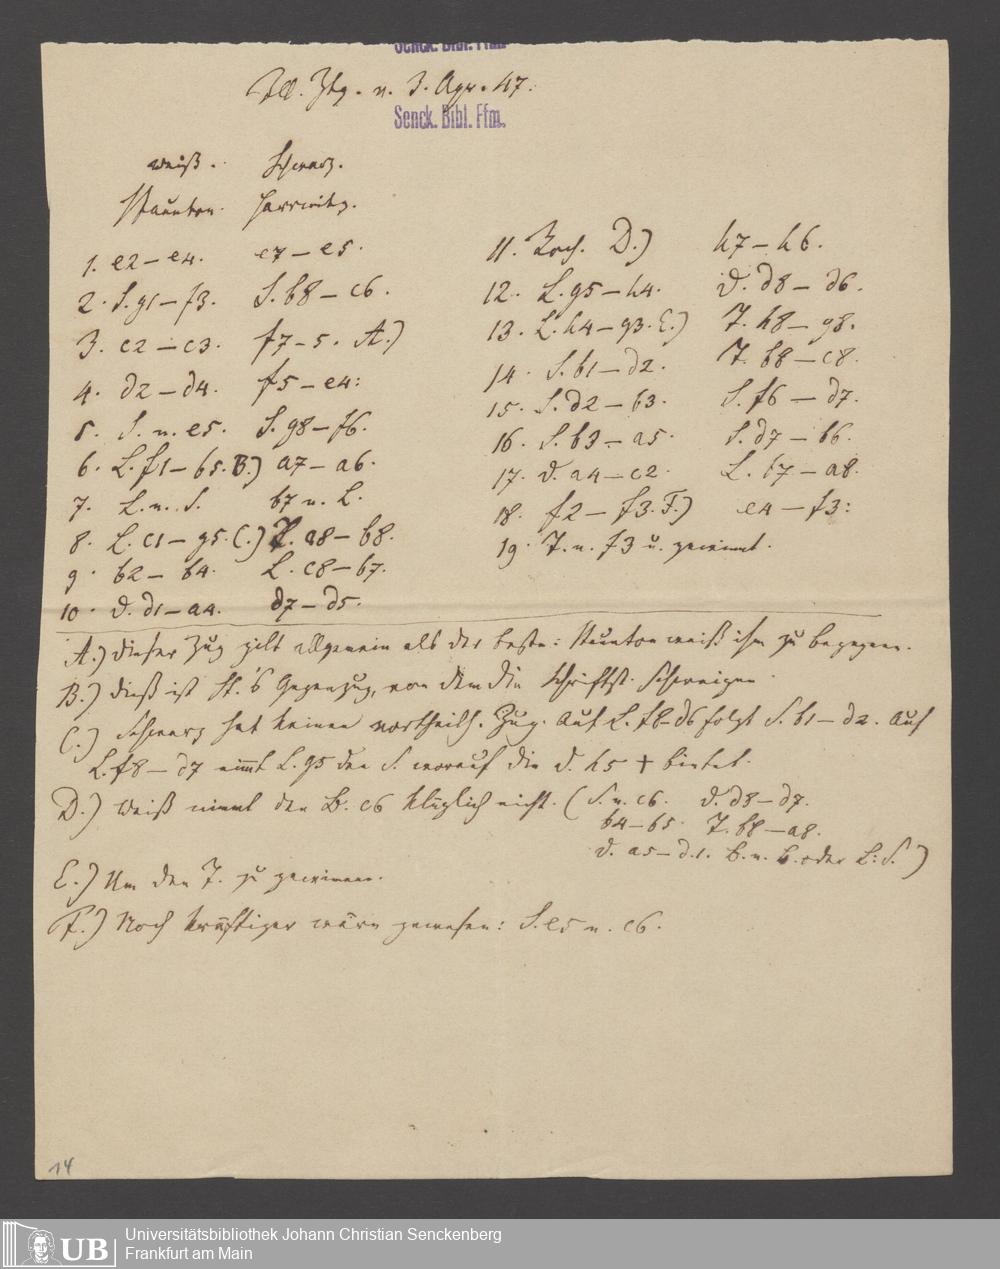 Senck. Bibl. Ffm.
Ill. Ztg. v. 3. Apr. 47.
Senck. Bibl. Ffm.
Weiß. Schwarz.
Staunton. Harrwitz.
1. e2 – e4. e7 – e5.
2. S. g1 – f3. S. b8 – c6.
3. c2 – c3. f7 – 5. A.)
4. d2 – d4. f5 – e4:
5. S. n. e5. S. g8 – f6.
6. L. f1 – b5. B.) a7 – a6.
7. L. n. S. b7 n. L.
8. L. c1 – g5. C.) T. a8 – b8.
9. b2 – b4. L. c8 – b7.
10. D. d1 – a4. d7 – d5.
11. Roch. D.) h7 – h6.
12. L. g5 – h4. D. d8 – d6.
13. L. h4 – g3. E.) T. h8 – g8.
14. S. b1 – d2. T. b8 – c8.
15. S. d2 – b3. S. f6 – d7.
16. S. b3 – a5. S. d7 – b6.
17. D. a4 – c2. L. b7 – a8.
18. f2 – f3. F.) e4 – f3:
19. T. n. f3 u. gewinnt.
A.) Dieser Zug gilt allgemein als der beste: Staunton weiß ihm zu begegnen.
B.) Dieß ist St.'s Gegenzug, von dem die Schriftst. schweigen.
C.) Schwarz hat keinen vortheilh. Zug. Auf L. f8 – d6 folgt S. b1 – d2. Auf
L. f8 – d7 nimmt L. g5 den S. worauf die D. h5 † bietet.
D.) Weiß nimmt den B. c6 klüglich nicht. (S. n. c6. D. d8 – d7.
b4 – b5. T. b8 – a8.
D. a5 – d1. B. n. B. oder L: S.)
E.) Um den T. zu gewinnen.
F.) Noch kräftiger wäre gewesen: S. e5 n. c6.
14
UB
Universitätsbibliothek Johann Christian Senckenberg
Frankfurt am Main